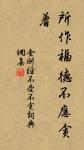 所作福德不應貪
著
金剛經不受不貪詞典
網集